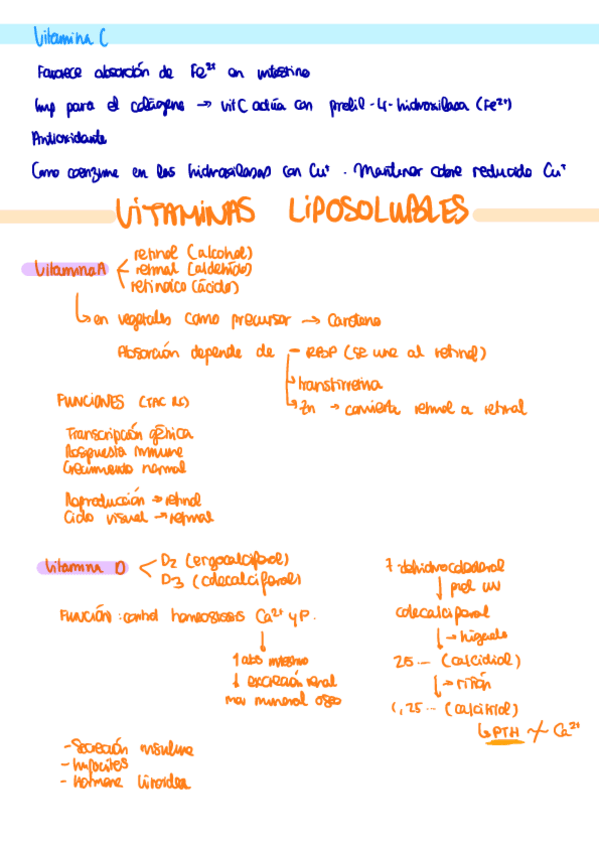 Vitamina C
Favorece absorción de Fe²⁺ en intestino
Imp para el colágeno → vit C actúa con prolil-4-hidroxilasa (Fe²⁺)
Antioxidante
Como coenzima en las hidroxilasas con Cu⁺. Mantener cobre reducido Cu⁺
VITAMINAS LIPOSOLUBLES
Vitamina A
retinol (alcohol)
retinal (aldehído)
retinoico (ácido)
en vegetales como precursor → Caroteno
Absorción depende de - RBP (se une al retinol)
transtirretina
Zn → convierte retinol a retinal
FUNCIONES
Transcripción génica
Respuesta inmune
Crecimiento normal
Reproducción → retinol
Ciclo visual → retinal
Vitamina D
D2 (ergocalciferol)
D3 (colecalciferol)
FUNCIÓN: control homeostasis Ca²⁺ y P.
↑ abs intestino
↓ excreción renal
mov mineral óseo
7-dehidrocolesterol
↓ piel UV
colecalciferol
↓→ hígado
25... (calcidiol)
↓→ riñón
1,25... (calcitriol)
↳ PTH Ca²⁺
- Secreción insulina
- linfocitos
- Hormona tiroidea